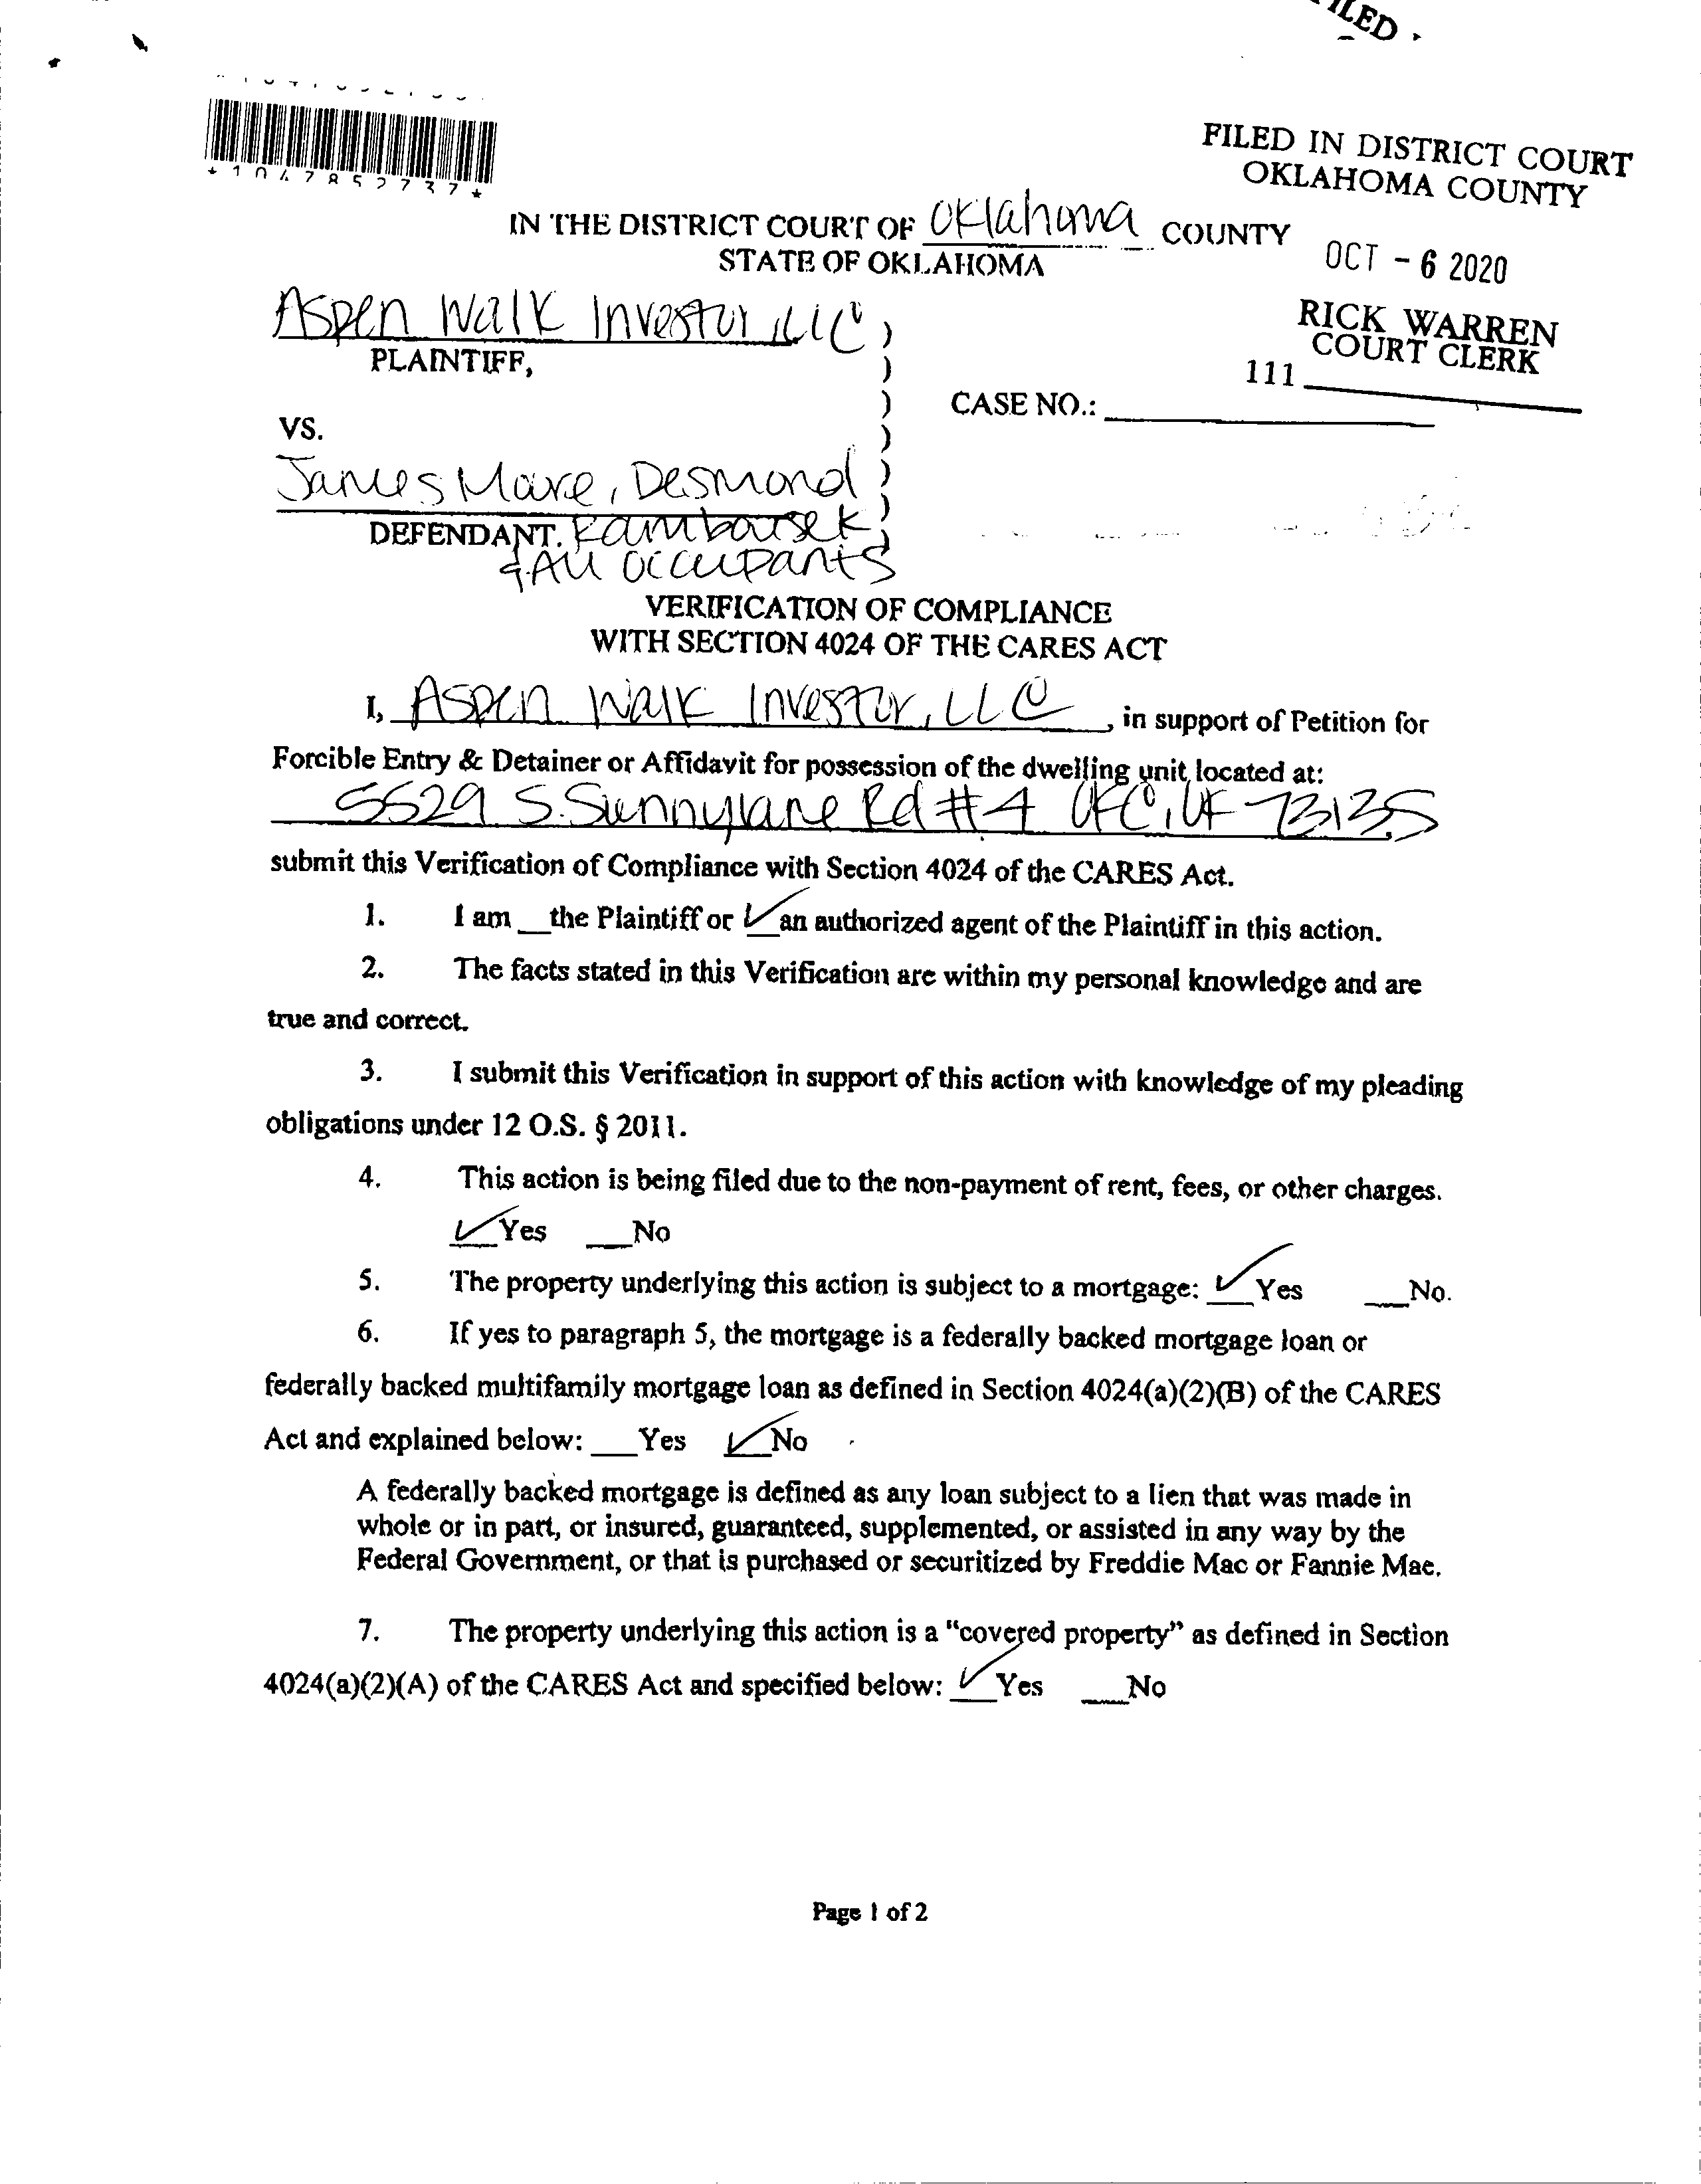 FILED
FILED IN DISTRICT COURT
OKLAHOMA COUNTY
*1047852737*
IN THE DISTRICT COURT OF Oklahoma COUNTY
STATE OF OKLAHOMA
OCT - 6 2020
Aspen Walk Investor, LLC )
PLAINTIFF, )
RICK WARREN
COURT CLERK
111
) CASE NO.:
VS. )
James Mare, Desmond )
DEFENDANT. )
& All occupants
VERIFICATION OF COMPLIANCE
WITH SECTION 4024 OF THE CARES ACT
I, Aspen Walk Investor, LLC, in support of Petition for
Forcible Entry & Detainer or Affidavit for possession of the dwelling unit located at:
5529 S. Sunnylane Rd #4 OKC, OK 73135
submit this Verification of Compliance with Section 4024 of the CARES Act.
1. I am __the Plaintiff or ✓an authorized agent of the Plaintiff in this action.
2. The facts stated in this Verification are within my personal knowledge and are
true and correct.
3. I submit this Verification in support of this action with knowledge of my pleading
obligations under 12 O.S. § 2011.
4. This action is being filed due to the non-payment of rent, fees, or other charges.
✓Yes __No
5. The property underlying this action is subject to a mortgage: ✓Yes __No.
6. If yes to paragraph 5, the mortgage is a federally backed mortgage loan or
federally backed multifamily mortgage loan as defined in Section 4024(a)(2)(B) of the CARES
Act and explained below: __Yes ✓No
A federally backed mortgage is defined as any loan subject to a lien that was made in
whole or in part, or insured, guaranteed, supplemented, or assisted in any way by the
Federal Government, or that is purchased or securitized by Freddie Mac or Fannie Mae.
7. The property underlying this action is a "covered property" as defined in Section
4024(a)(2)(A) of the CARES Act and specified below: ✓Yes __No
Page 1 of 2